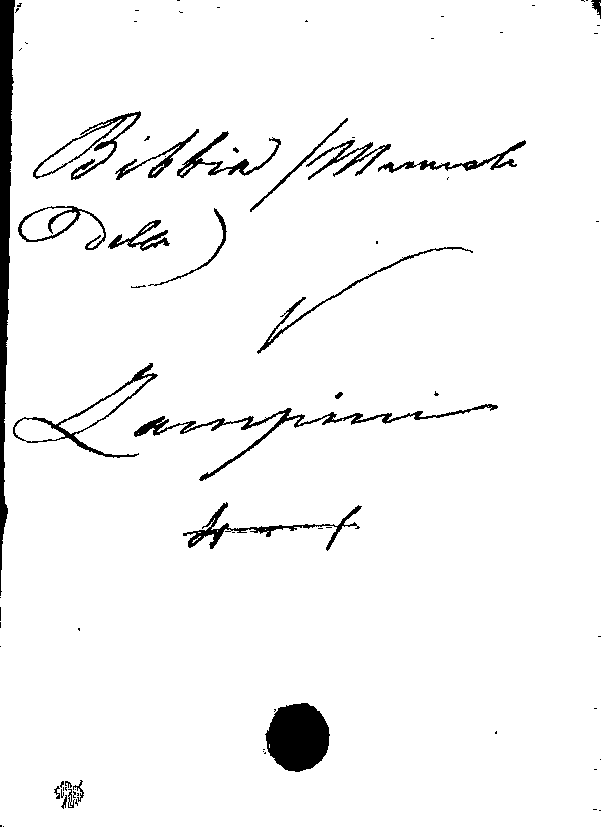 Bibbia (Manuale
della)
V
Zampini